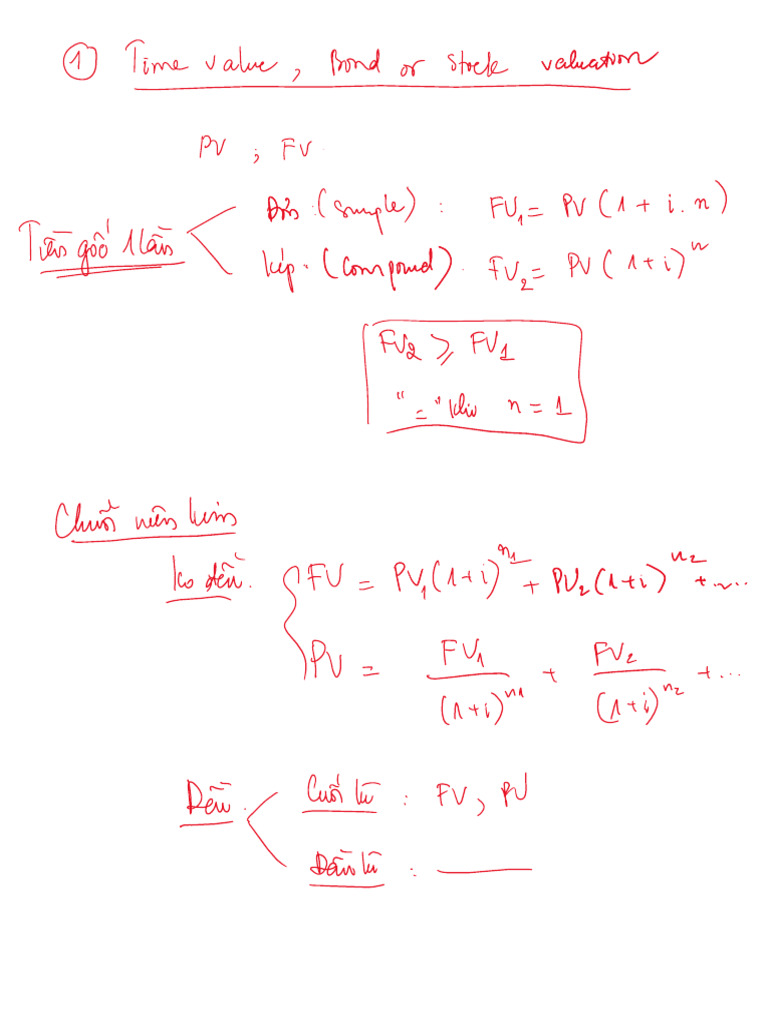 ① Time value, Bond or Stock valuation
PV ; FV
Tiền gốc 1 lần
Đơn: (Simple) : FV₁ = PV (1 + i.n)
kép: (Compound). FV₂ = PV (1+i)ⁿ
FV₂ ⩾ FV₁
"=" khi n = 1
Chuỗi niên kim
ko đều: FV = PV₁(1+i)^n₁ + PV₂(1+i)^n₂ + ....
PV = FV₁/(1+i)^n₁ + FV₂/(1+i)^n₂ + ...
Đều:
Cuối kì : FV, PV
Đầu kì : ———